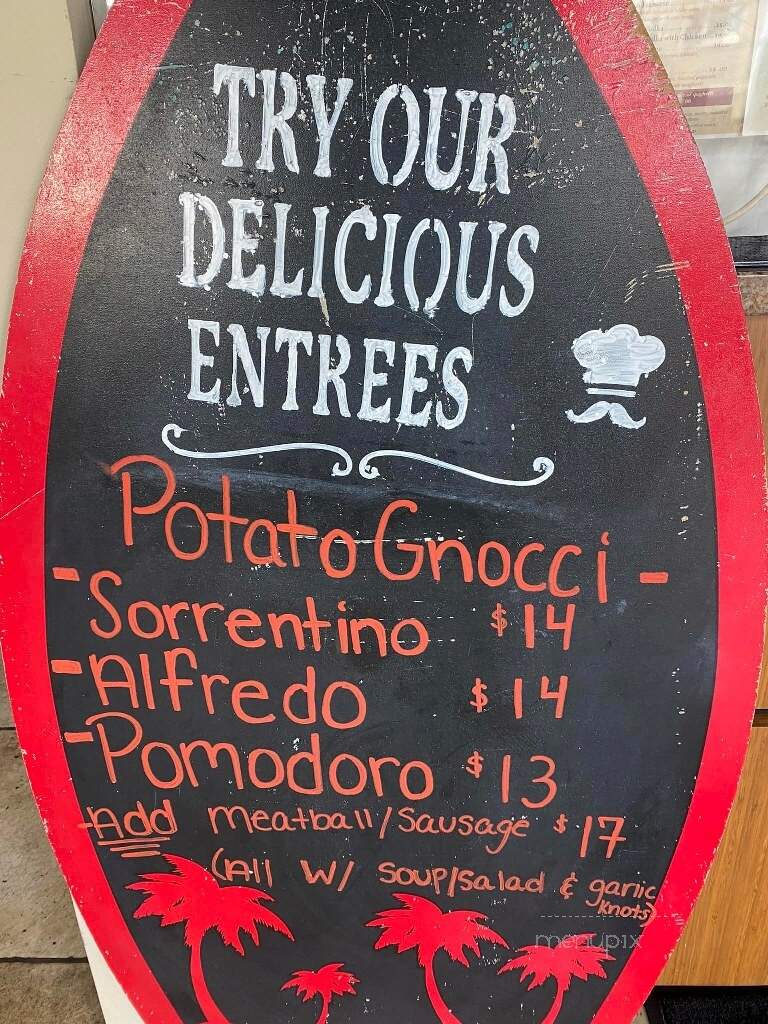 TRY OUR
DELICIOUS
ENTREES
Potato Gnocci -
- Sorrentino $14
- Alfredo $14
- Pomodoro $13
- Add meatball/sausage $17
(All w/ soup/salad & garlic
knots)
menupix